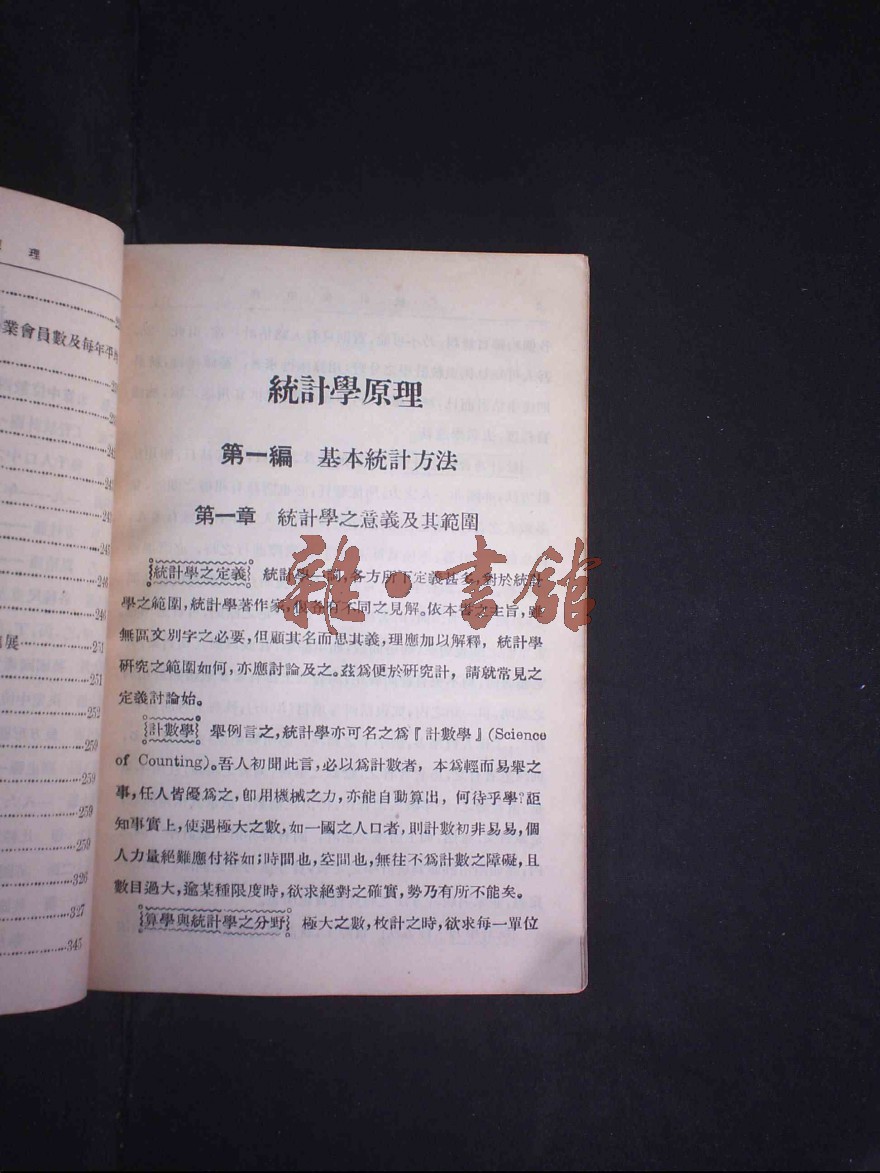 理
業會員數及每年平
241
245
246
246
展
251
251
252
259
259
259
259
326
327
345
統計學原理
第一編 基本統計方法
第一章 統計學之意義及其範圍
統計學之定義 統計學一詞,各方所下定義甚多,對於統計
學之範圍,統計學著作家,似各有不同之見解。依本書之主旨,雖
無區文別字之必要,但顧其名而思其義,理應加以解釋,統計學
研究之範圍如何,亦應討論及之。茲爲便於研究計,請就常見之
定義討論始。
計數學 舉例言之,統計學亦可名之爲『計數學』(Science
of Counting)。吾人初聞此言,必以爲計數者,本爲輕而易舉之
事,任人皆優爲之,卽用機械之力,亦能自動算出,何待乎學?詎
知事實上,使遇極大之數,如一國之人口者,則計數初非易易,個
人力量絕難應付裕如;時間也,空間也,無往不爲計數之障礙,且
數目過大,逾某種限度時,欲求絕對之確實,勢乃有所不能矣。
算學與統計學之分野 極大之數,枚計之時,欲求每一單位
雜·書館